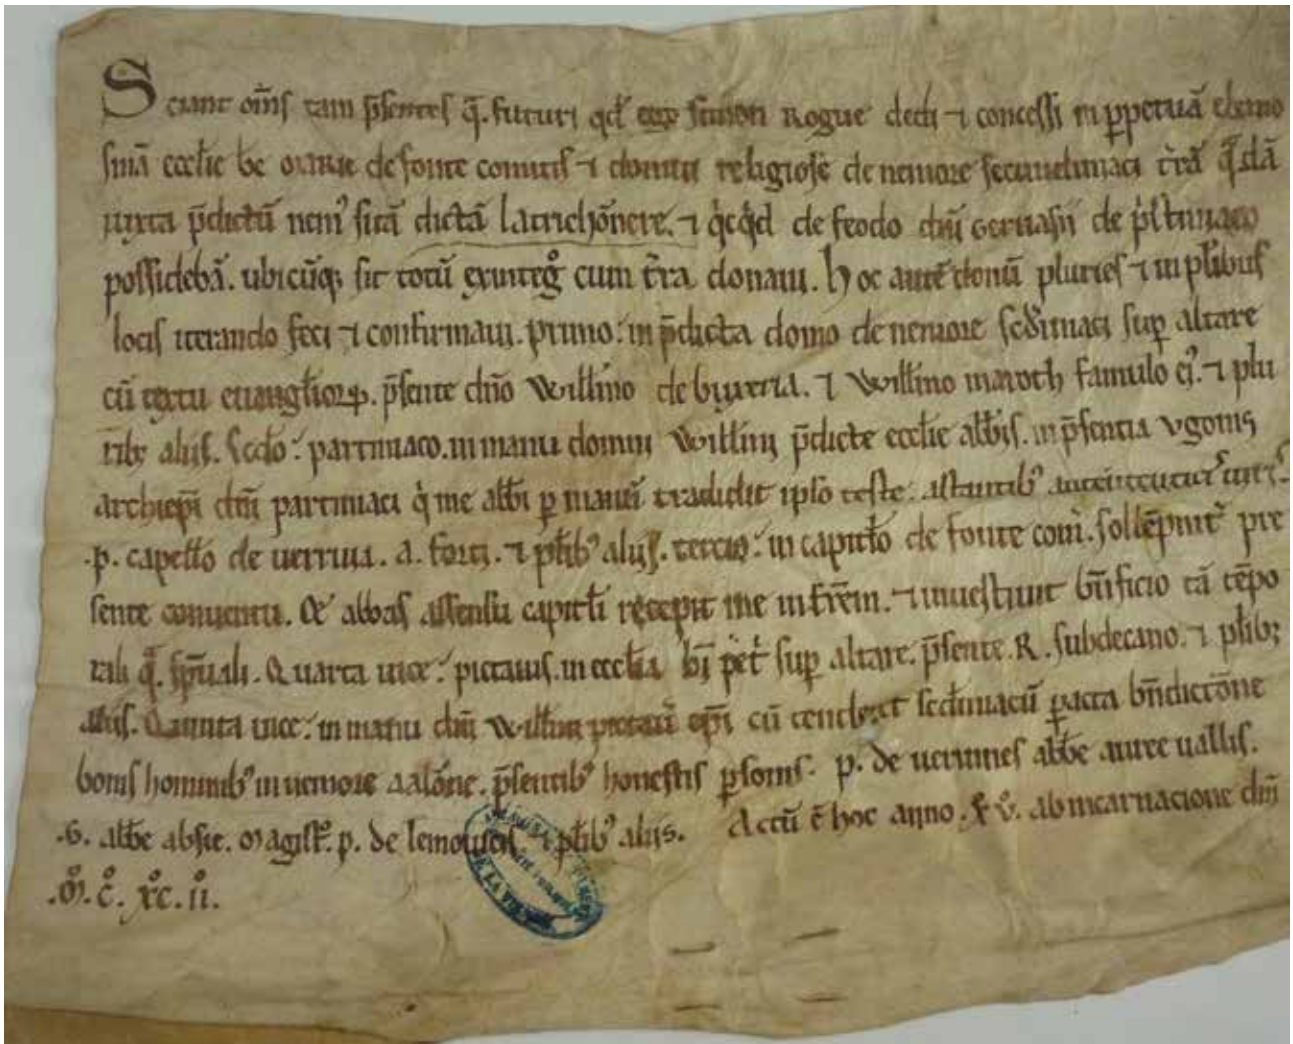 Sciant om̄s tam p̄sentes q̄. futuri qd̄ ego simon Rogue dedi ⁊ concessi in ꝑpetuā elemo
sinā eccl̄ie be Marie de fonte comitis ⁊ domui religiose de nemore secundiniaci t̄rā q̄dā
iuxta p̄dictū nem᾿ sitā dictā Latrichōnere. ⁊ q̇cq̇d de feodo dn̄i Geruasii de
possidebā. ubicūq; sit totū exintegͦ cum t̄ra donaui. hoc autē donū pluries ⁊ in pl̄ibus
locis iterando feci ⁊ confirmaui. primo: in p̄dicta domo de nemore sup̄ altare
cū textu euangl̄ioꝝ. p̄sente dn̄o Will̄mo de ⁊ Will̄mo maroth famulo ei᾿. ⁊ plu
rib; aliis. Sc̄do: partiniaco. in manu domini Will̄mi p̄dicte eccl̄ie abb̄is. in p̄sentia vgonis
archiep̄i dn̄i partiniaci q̇ me abb̄i ꝑ manū tradidit ipso teste: astantib᾿
.p. capell̄o de uerruia. A. forti. ⁊ pl̄ib᾿ aliis. tercio: in capitl̄o de fonte com̄. sollēpnit̄ pre
sente conuentu. Et abbas assensu capitl̄i recepit me in fr̄em. ⁊ inuestiuit bn̄ficio tā tēpo
rali q̄. sp̄uali. Quarta uice: pictauis. in eccl̄ia bi̅ pet̄ sup̄ altare. p̄sente. R. subdecano. ⁊ pl̄ib;
aliis. Quinta uice: in manu dn̄i Will̄mi pictaū ep̄i cū ꝑacta bn̄dictōne
bonis hominib᾿ in nemore p̄sentib᾿ honestis ꝑsonis. p. de uerrines abb̄e auree uallis.
.G. abb̄e absie. Magist̄. p. de lemouicis. ⁊ pl̄ib᾿ aliis. Actū ē hoc anno. ab incarnacione dn̄i
.Mͦ. Cͦ. XCͦ. IIͦ.